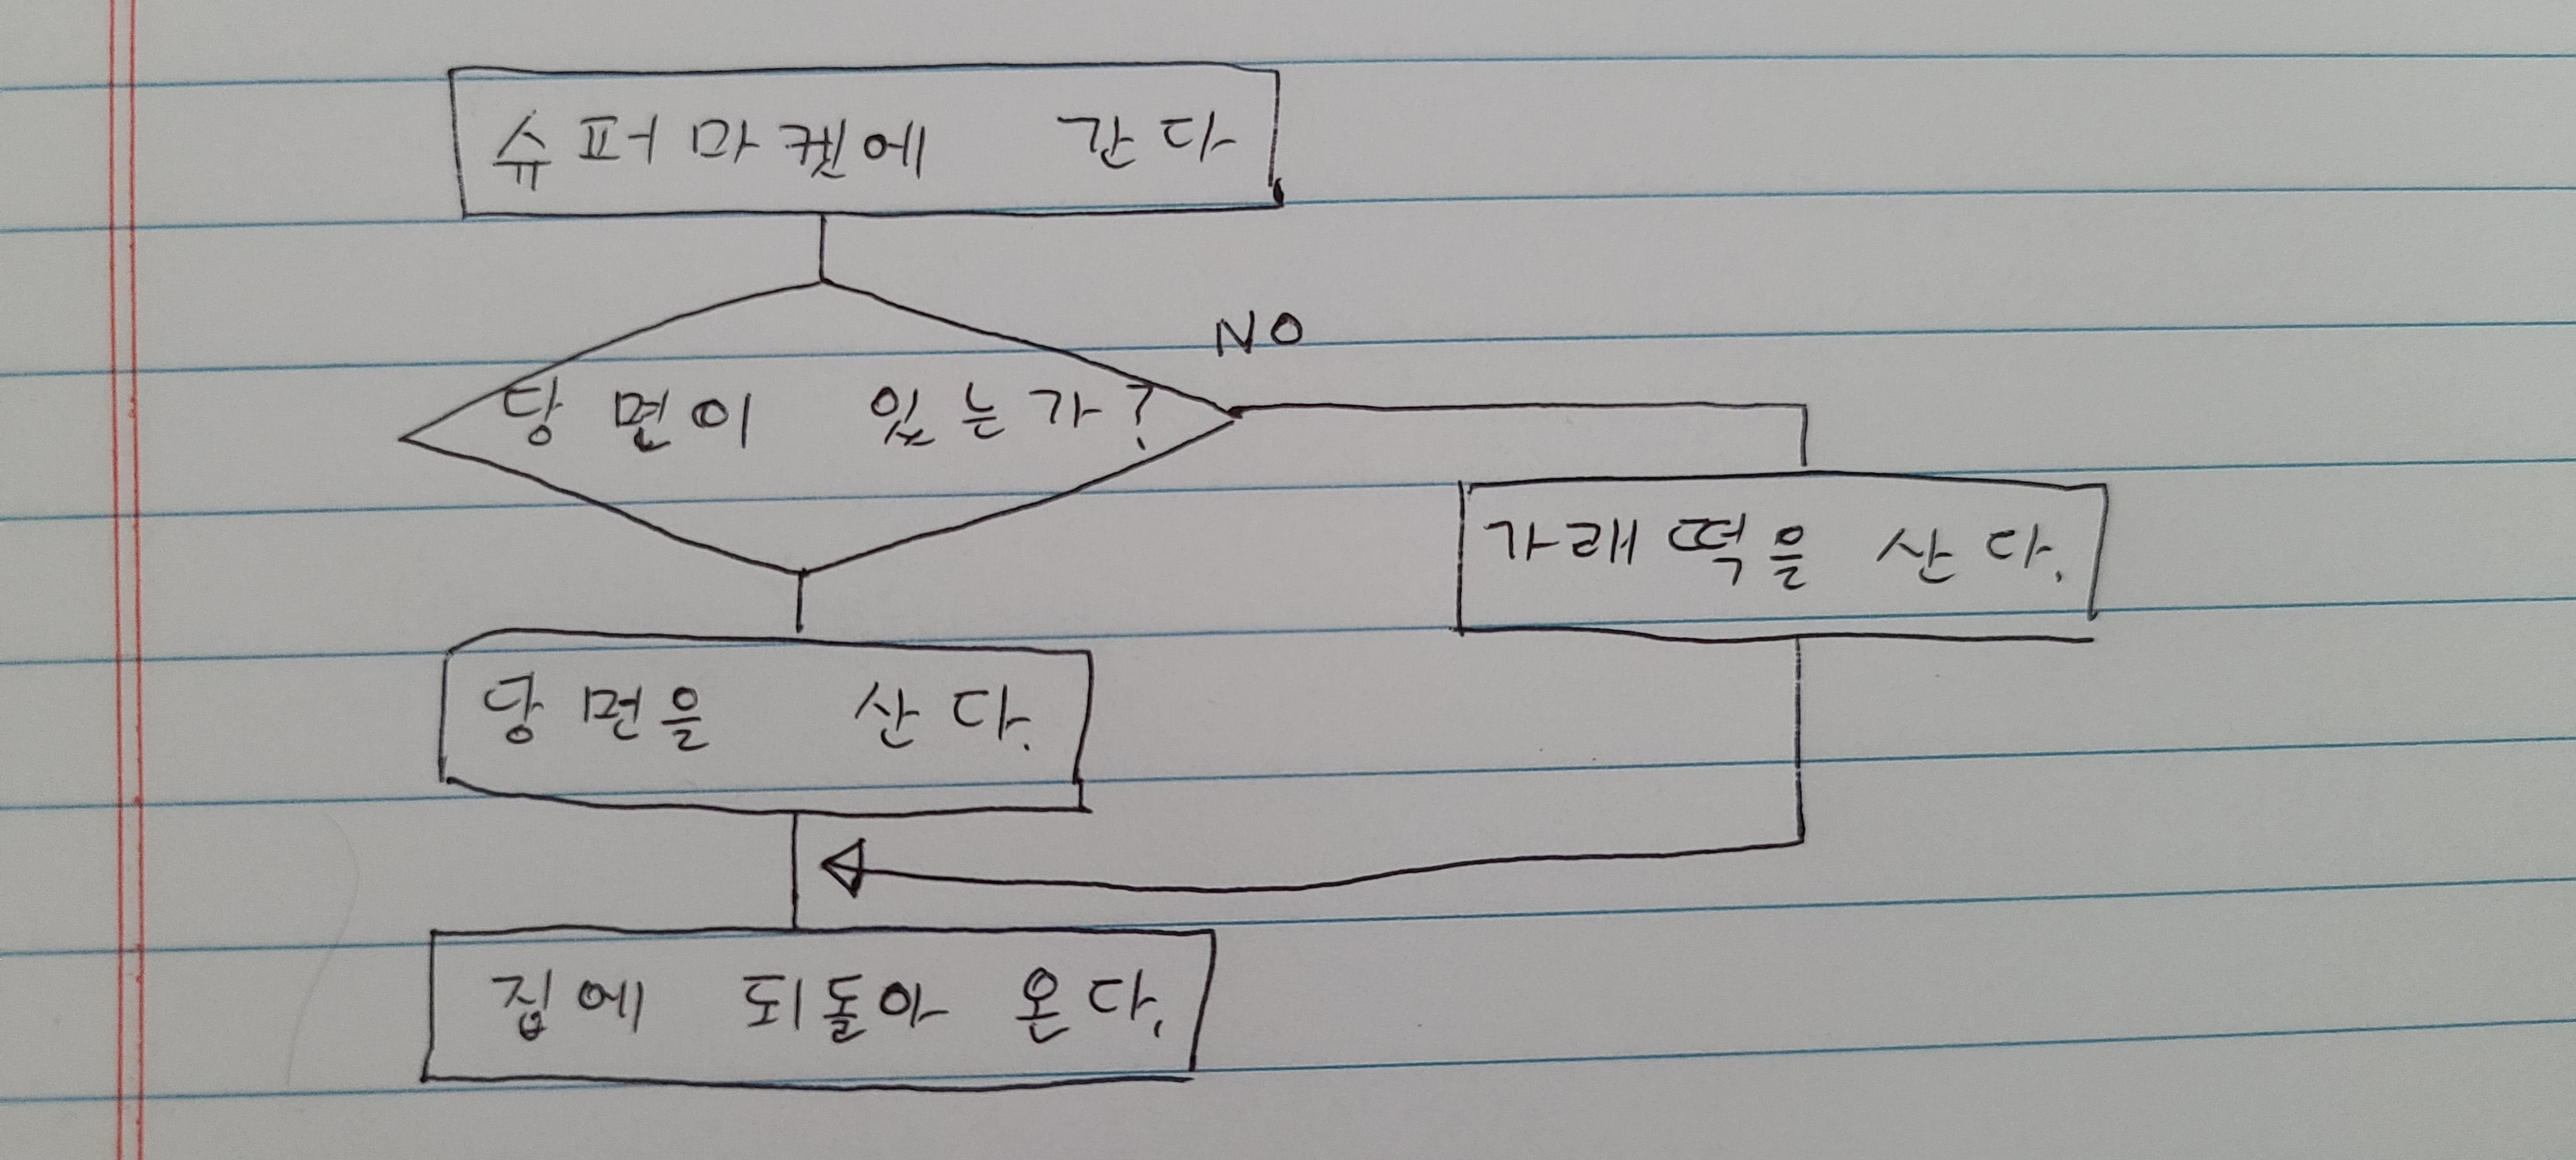 슈퍼마켓에 간다
NO
당면이 있는가?
가래떡을 산다.
당면을 산다.
집에 되돌아 온다.